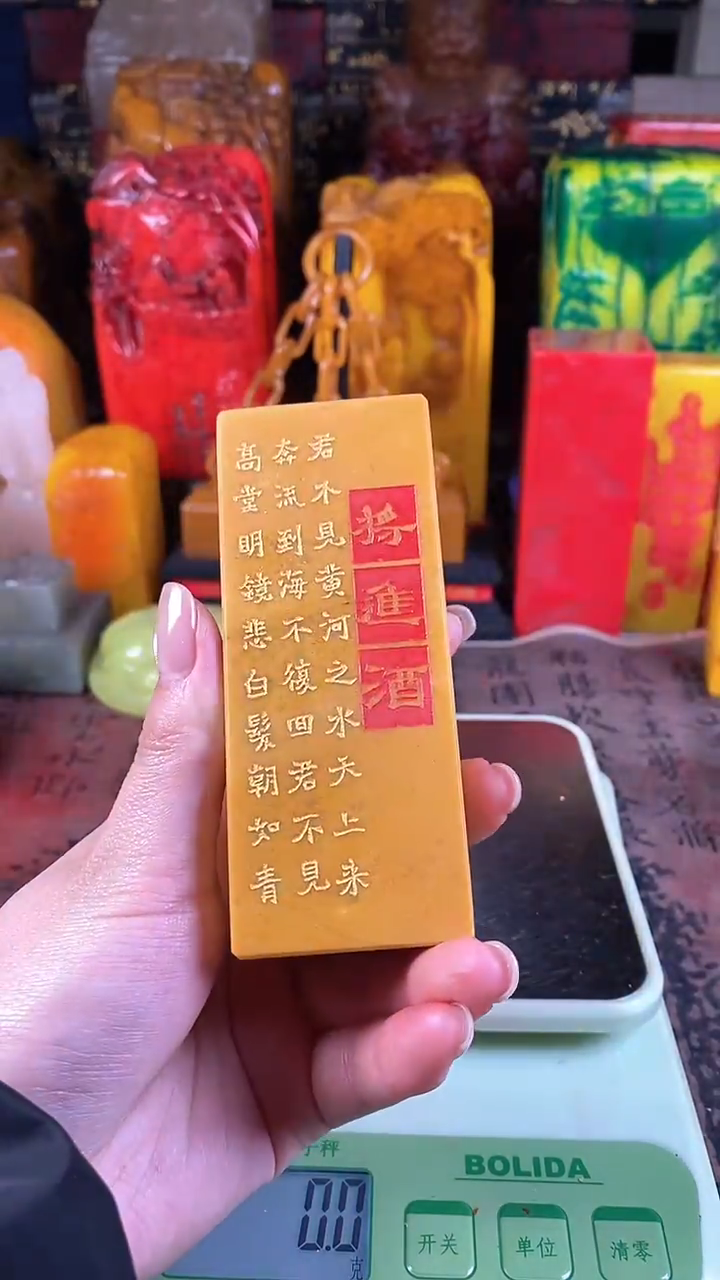 将進酒
君不見黄河之水天上来
奔流到海不復回君不見
高堂明鏡悲白髮朝如青
子秤
BOLIDA
0.0
克
开关
单位
清零